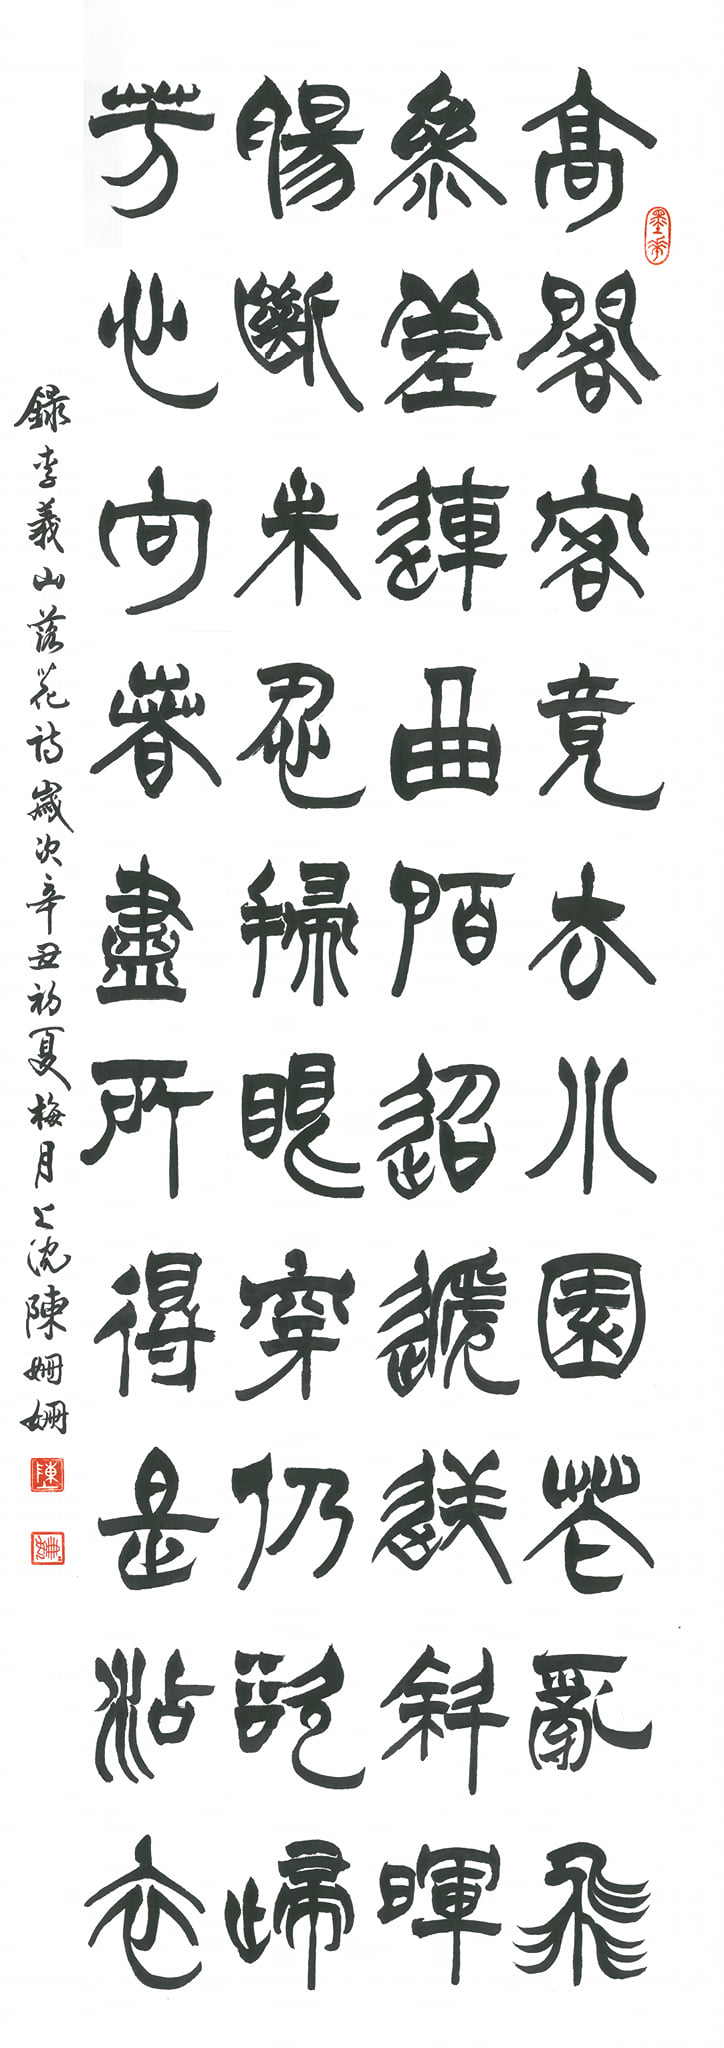 高閣客竟去小園花亂飛
參差連曲陌迢遞送斜暉
腸斷未忍掃眼穿仍欲歸
芳心向春盡所得是沾衣
錄李義山落花詩歲次辛丑初夏梅月上浣陳姍姍
陳
姍